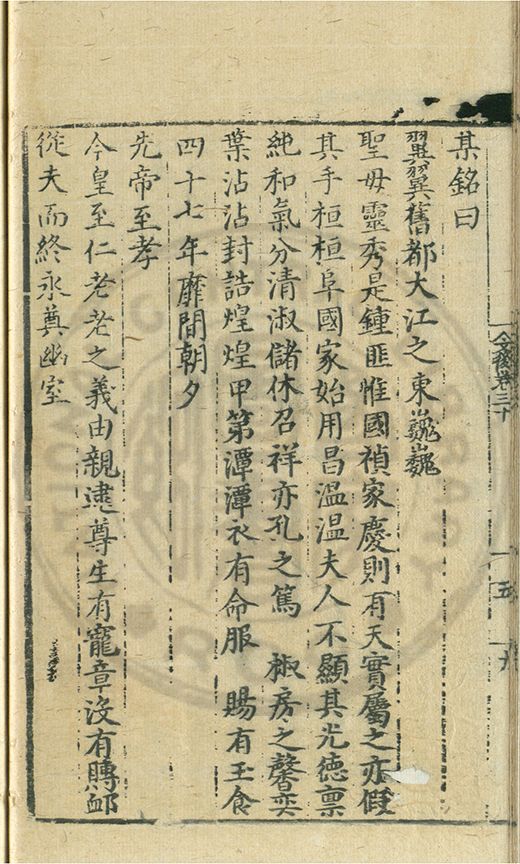 其銘曰
翼翼舊都大江之東巍巍
聖母靈秀是鍾匪惟國禎家慶則有天實屬之亦假
其手桓桓阜國家始用昌溫溫夫人不顯其光德稟
純和氣分清淑儲休召祥亦孔之篤椒房之馨奕
葉沾沾封誥煌煌甲第潭潭衣有命服賜有玉食
四十七年靡間朝夕
先帝至孝
今皇至仁老老之義由親逮尊生有寵章沒有賻䘏
從夫而終永奠幽室
卷三十
五